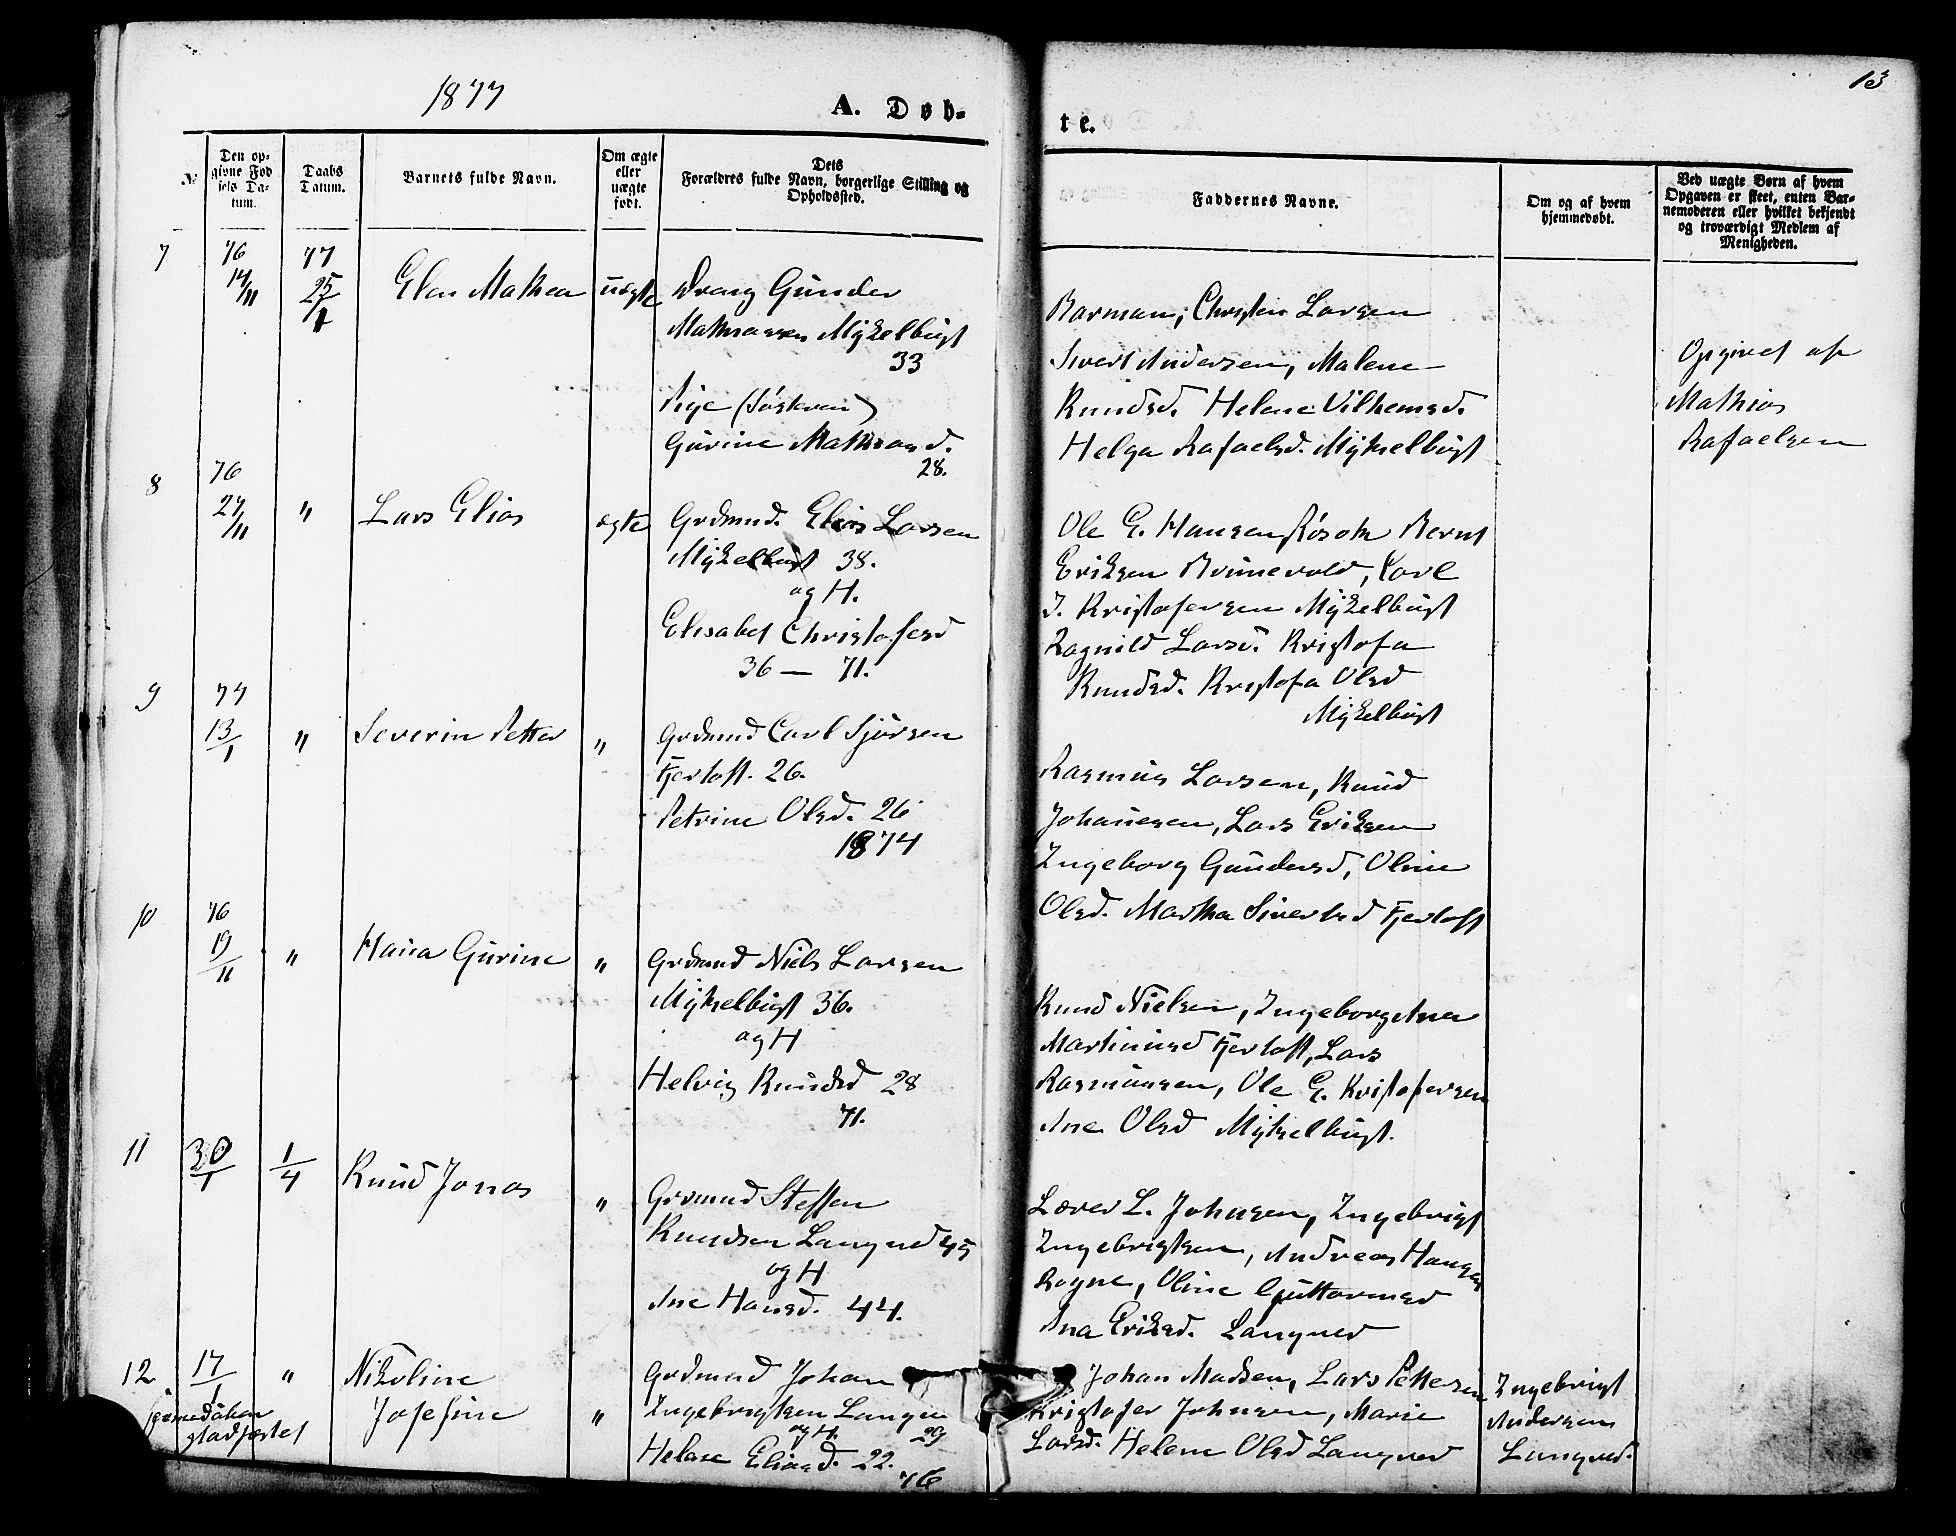 1877
A. Døb-
te.
13
№
Den op-
givne Fød
sels Da-
tum.
Daabs
Datum.
Barnets fulde Navn.
Om ægte
eller
uægte
født.
Dets
Forældres fulde Navn, borgerlige Stilling og
Opholdssted.
Faddernes Navne.
Om og af hvem
hjemmedøbt.
Ved uægte Børn af hvem
Opgaven er skeet, enten Bar-
nemoderen eller hvilket bekjendt
og troværdigt Medlem af
Menigheden.
7
76
14/11
77
25/1
Elen Mathea
uægte
Dreng Gunder
Mathiassen Mykelbust
33
Pige (Søskend)
Gurine Mathiasd.
28.
Barman; Christen Larsen
Sivert Andersen, Malene
Knudsd. Helene Vilhemsd.
Helga Rafaelsd. Mykelbust
Opgivet af
Mathias
Rafaelsen
8
76
27/11
"
Lars Elias
ægte
Grdmnd. Elias Larsen
Mykelbust 38.
og H.
Elisabet Christofersd
36 — 71.
Ole E. Hansen Røsok Bernt
Eriksen Brunevold, Carl
J. Kristofersen Mykelbust
Ragnild Larsd. Kristofa
Knudsd. Kristofa Olsd
Mykelbust
9
77
13/1
"
Severin Petter
"
Grdmnd Carl Sjursen
Fjertoft. 26.
Petrine Olsd. 26
1874
Rasmus Larsen, Knud
Johanesen, Lars Eriksen
Ingeborg Gundersd, Oline
Olsd. Martha Sivertsd Fjertoft
10
76
19/11
"
Hana Gurine
"
Grdmnd Niels Larsen
Mykelbust 36.
og H
Helvig Knudsd 28
71.
Knud Nielsen, Ingeborg Ana
Martinusd Fjertoft, Lars
Rasmussen, Ole E. Kristofersen
Ane Olsd Mykelbust.
11
30/1
1/4
Knud Jonas
"
Grdmnd Steffen
Knudsen Langned 45
og H
Ane Hansd. 44.
Lærer L. Johnsen, Ingebrigt
Ingebrigtsen, Andreas Hansen
Rogne, Oline Guttormsd
Ana Eriksd. Langned
12
17/1
"
Nikoline
Josefine
"
Grdmnd Johan
Ingebrigtsen Langne
og H. 29
Helene Eliasd. 22.
76
Johan Madsen, Lars Pettersen
Kristofer Johnsen, Marie
Larsd. Helene Olsd Langned
Ingebrigt
Andersen
Langned.
stadfæstet